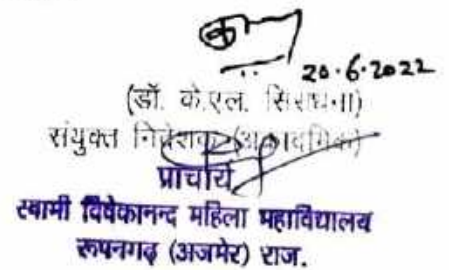 20.6.2022
(डॉ. के.एल. सिराधना)
संयुक्त निदेशक (अकादमिक)
प्राचार्य
स्वामी विवेकानन्द महिला महाविद्यालय
रूपनगढ़ (अजमेर) राज.